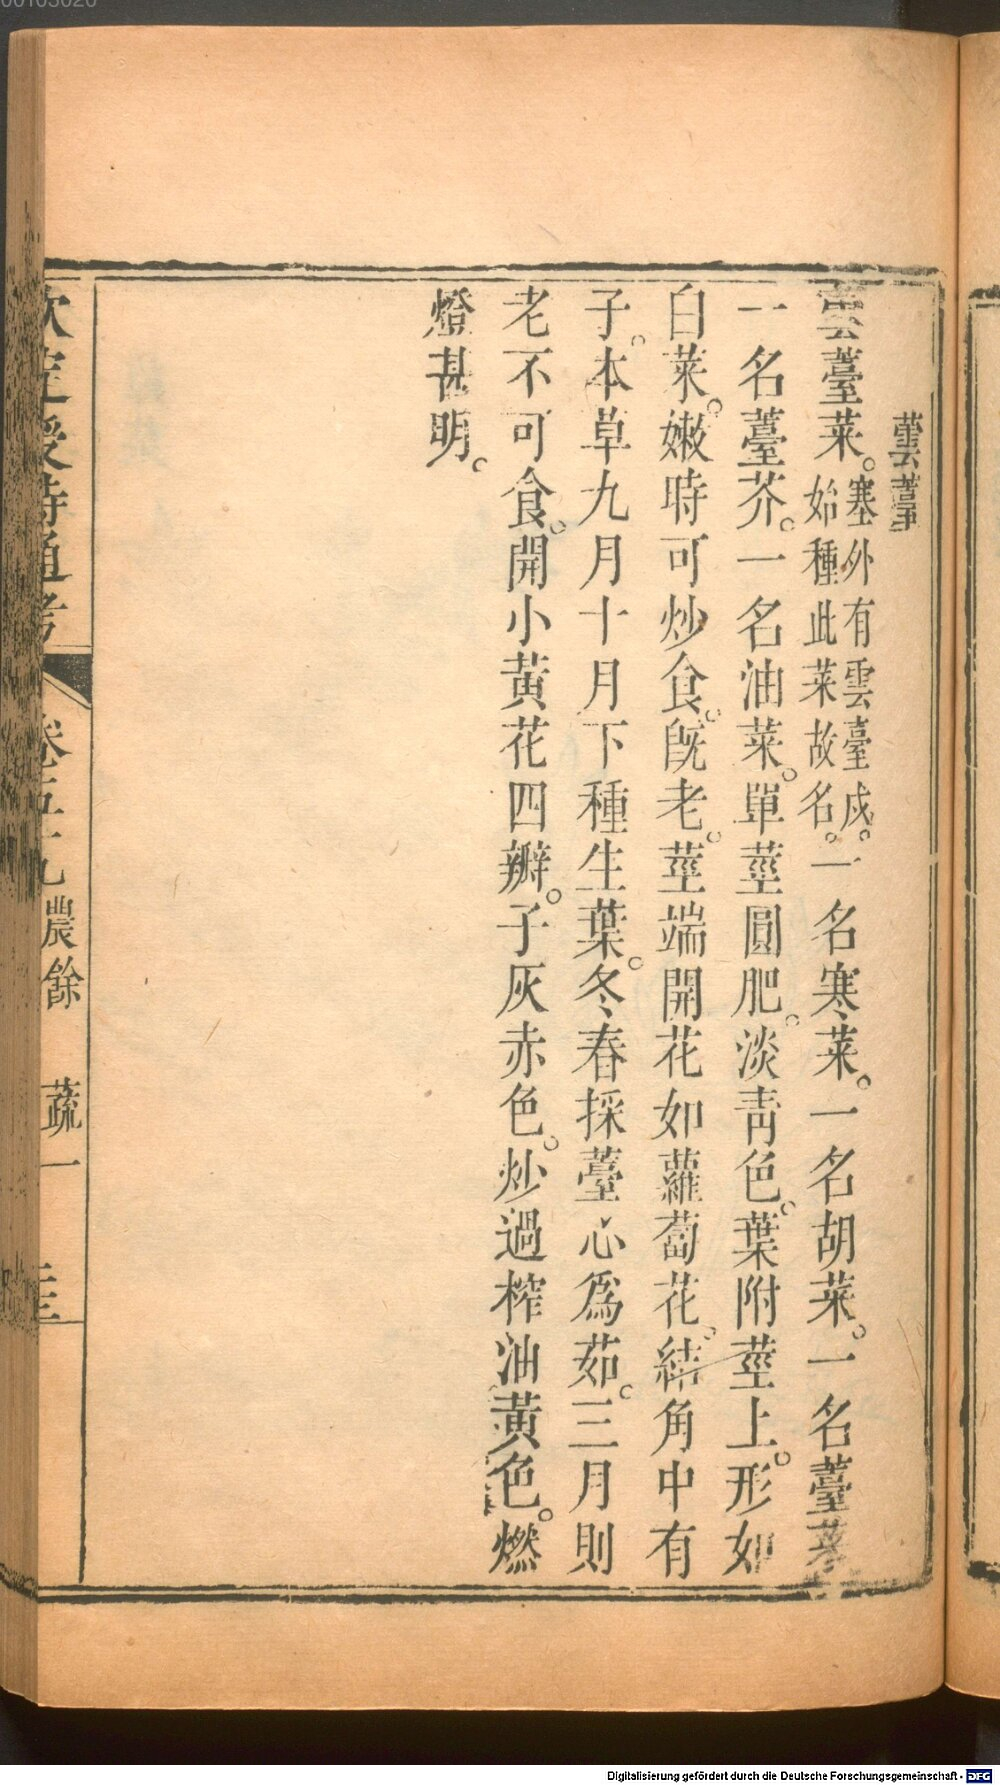 蕓薹
蕓薹菜。塞外有雲臺戍。始種此菜故名。一名寒菜。一名胡菜。一名薹菜
一名薹芥。一名油菜。單莖圓肥。淡青色。葉附莖上。形如
白菜。嫩時可炒食。既老。莖端開花如蘿蔔花。結角中有
子。本草九月十月下種生葉。冬春採薹心為茹。三月則
老不可食。開小黃花四瓣。子灰赤色。炒過榨油黃色。燃
燈甚明。
欽定授時通考 卷五十九農餘 蔬一
Digitalisierung gefördert durch die Deutsche Forschungsgemeinschaft - DFG